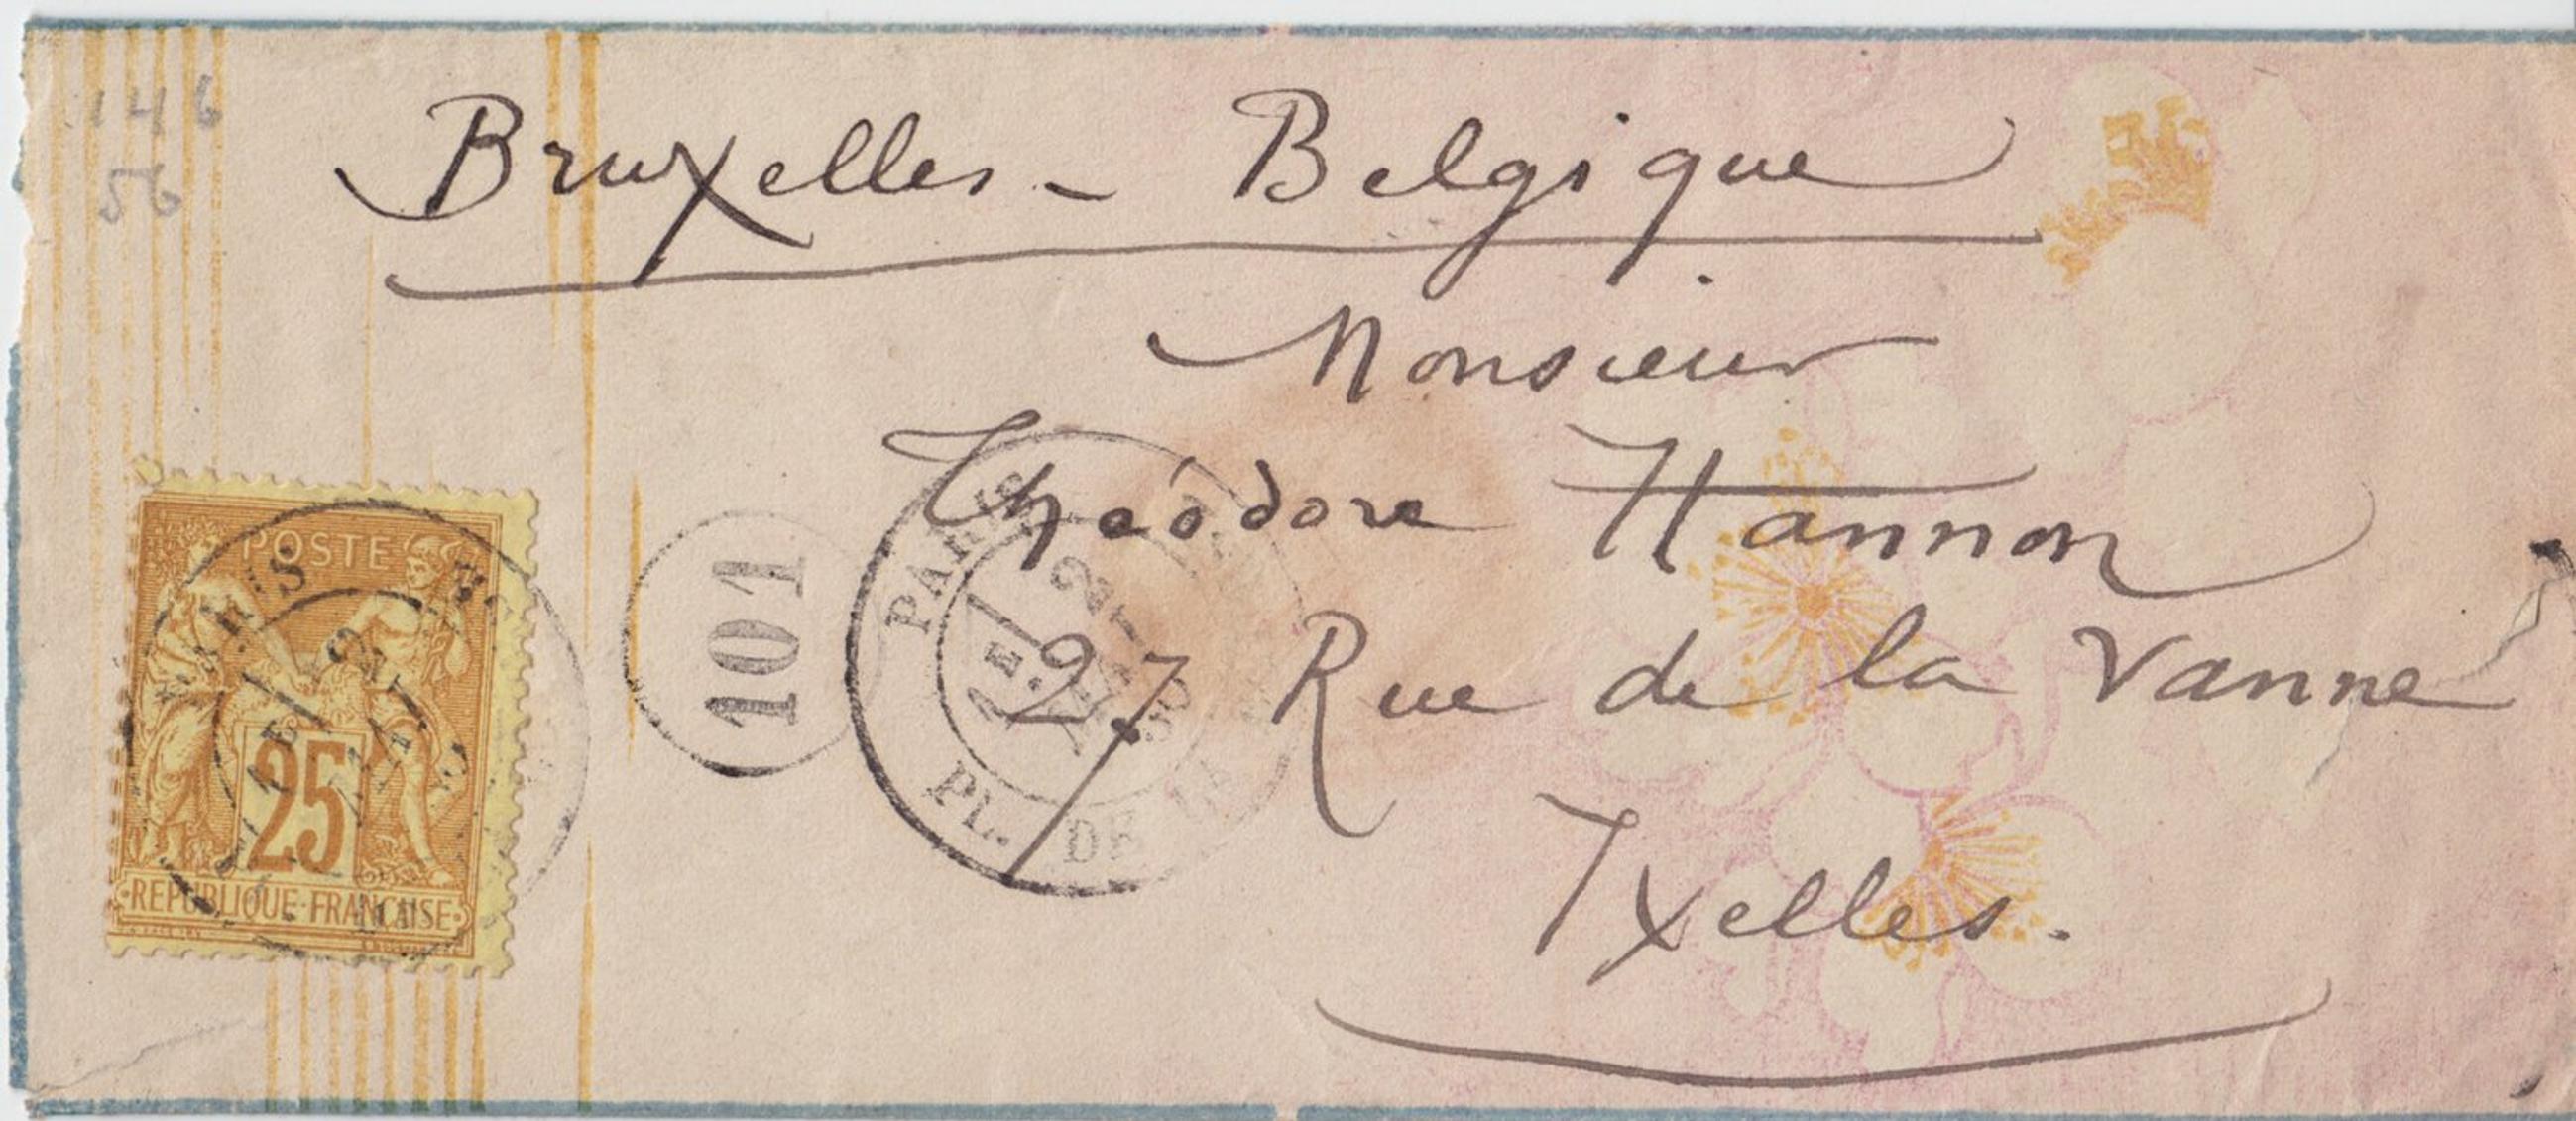 146
56
Bruxelles - Belgique
Monsieur
Théodore Hannon
27 Rue de la Vanne
Ixelles.
POSTE
25
REPUBLIQUE FRANCAISE
PARIS
101
PARIS
1E 2
80
PL. DE LA